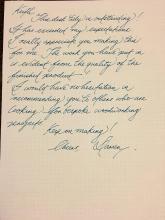 Keith,
The desk truly is outstanding!
It has exceeded my expectations
I really appreciate you making this
for me. The work you have put in
is evident from the quality of the
finished product.
I would have no hesitation in
recommending you to others who are
looking for bespoke woodworking
designs.
Keep on making!